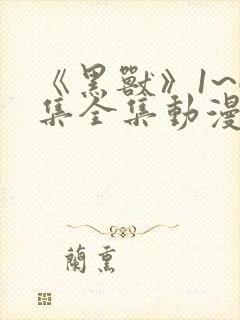 《黑獸》1~
集全集動漫
蘭熏